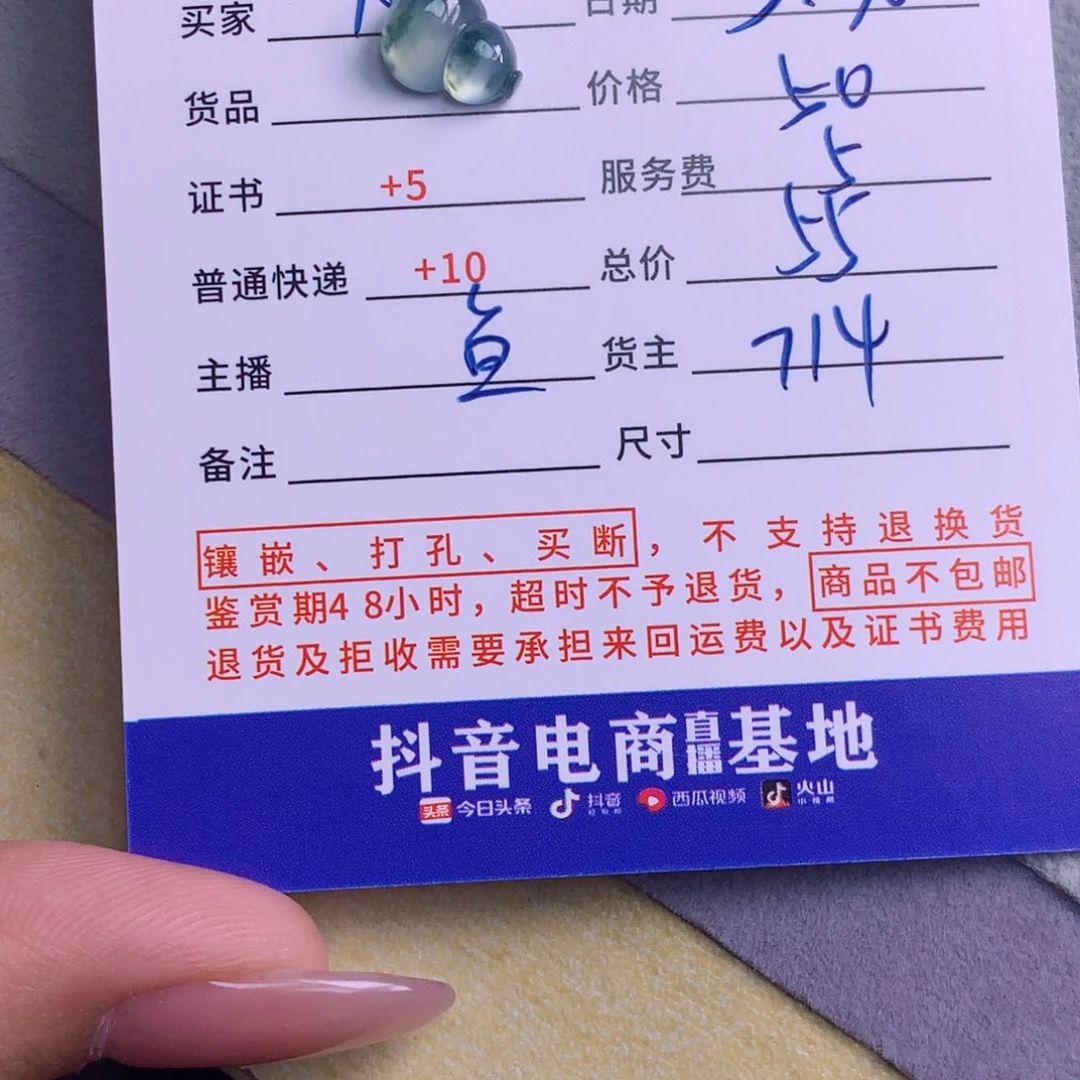 买家 日期
货品 价格 50
证书 +5 服务费 5
普通快递 +10 总价 55
主播 鱼 货主 714
备注 尺寸
镶嵌、打孔、买断，不支持退换货
鉴赏期48小时，超时不予退货，商品不包邮
退货及拒收需要承担来回运费以及证书费用
抖音电商直播基地
头条 今日头条 抖音 西瓜视频 火山